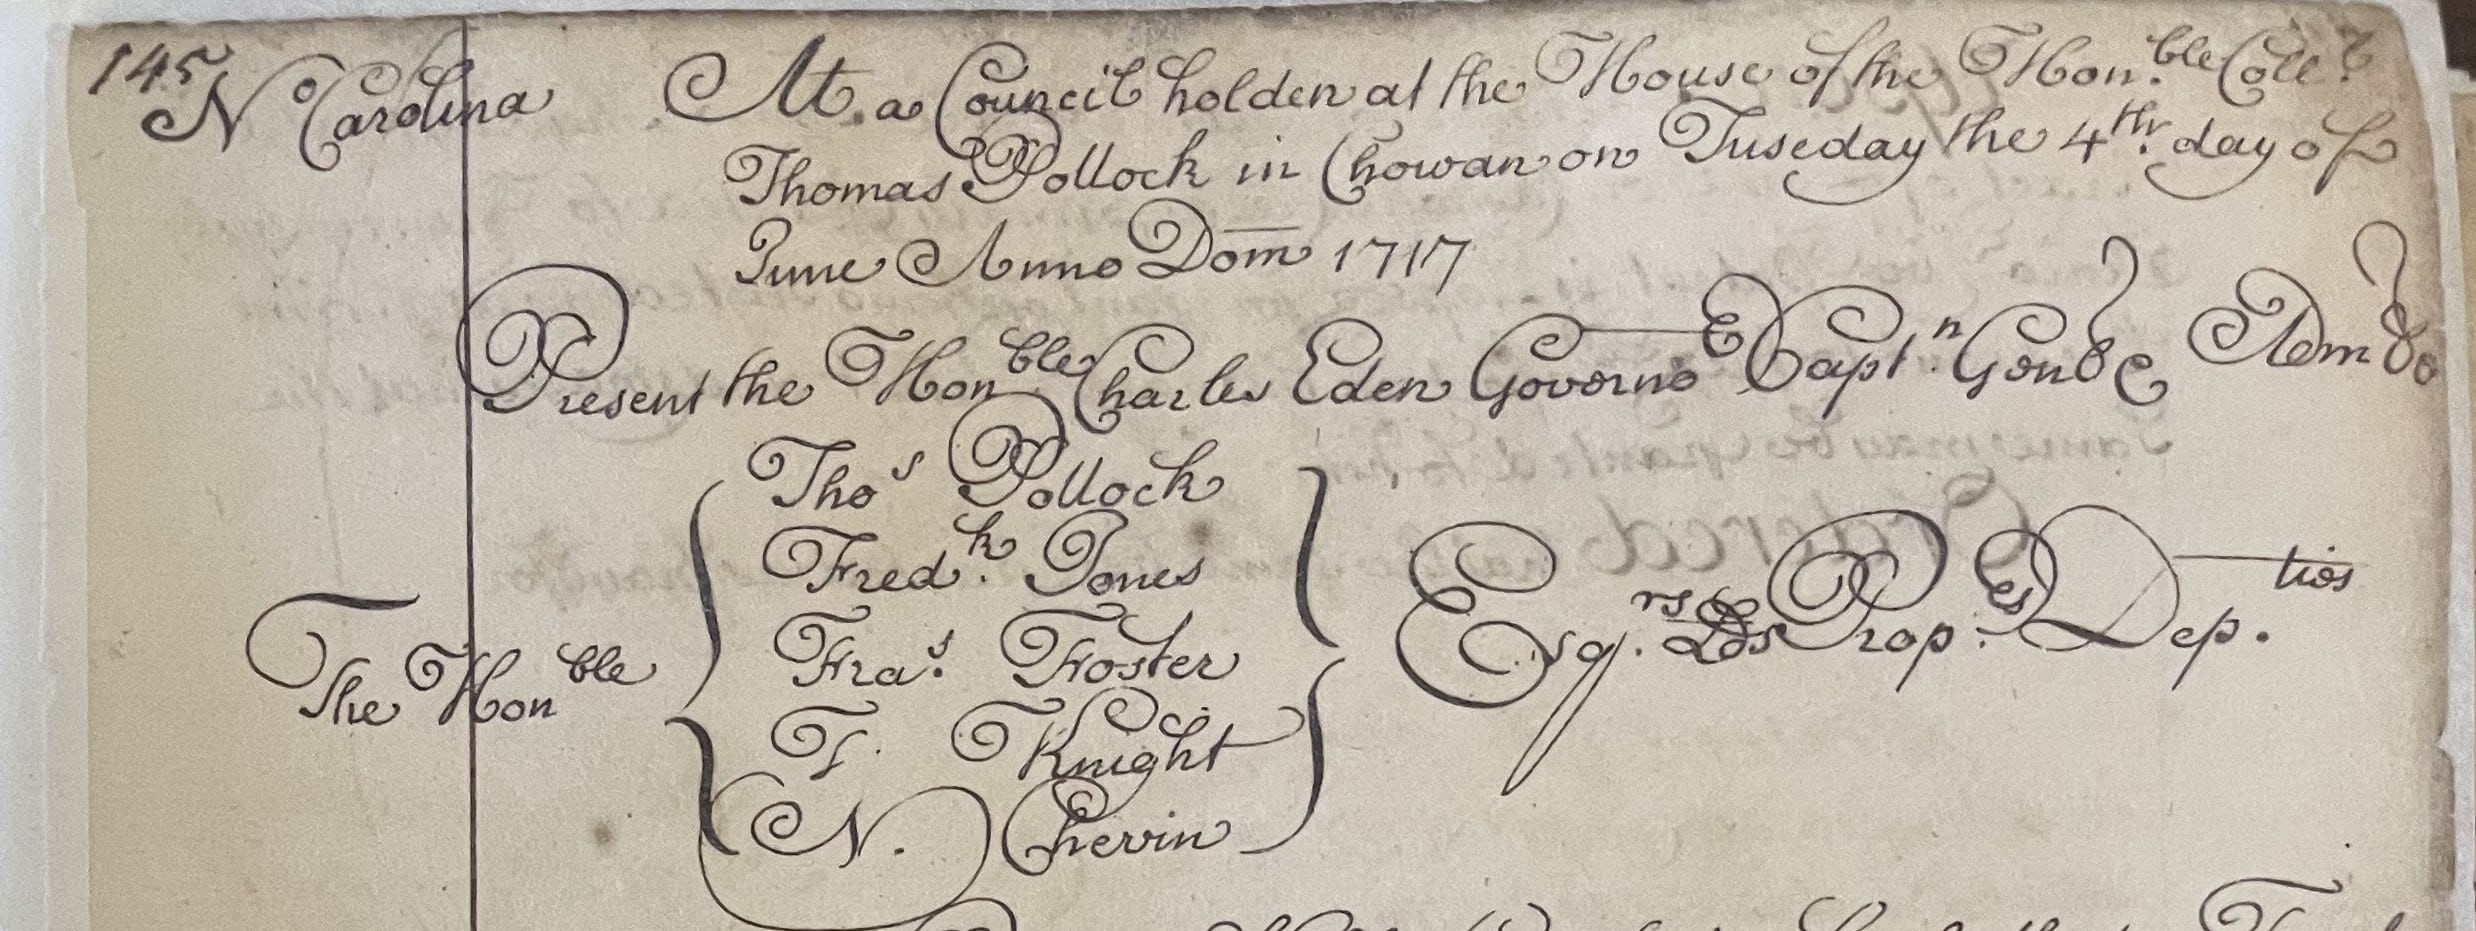 145
No Carolina At a Council holden at the House of the Honble Coll
Thomas Pollock in Chowan on Tuseday the 4th day of
June Anno Dom 1717
Present the Honble Charles Eden Governo Captn Gen & Adm
Thos Pollock
Fredk. Jones
Fras. Foster
The Honble Esqrs. Lds Prop.es Dep.ties
T. Knight
N. Chevin